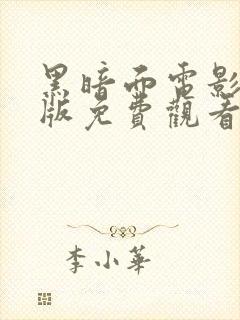 黑暗面電影
版免費觀看
李小華